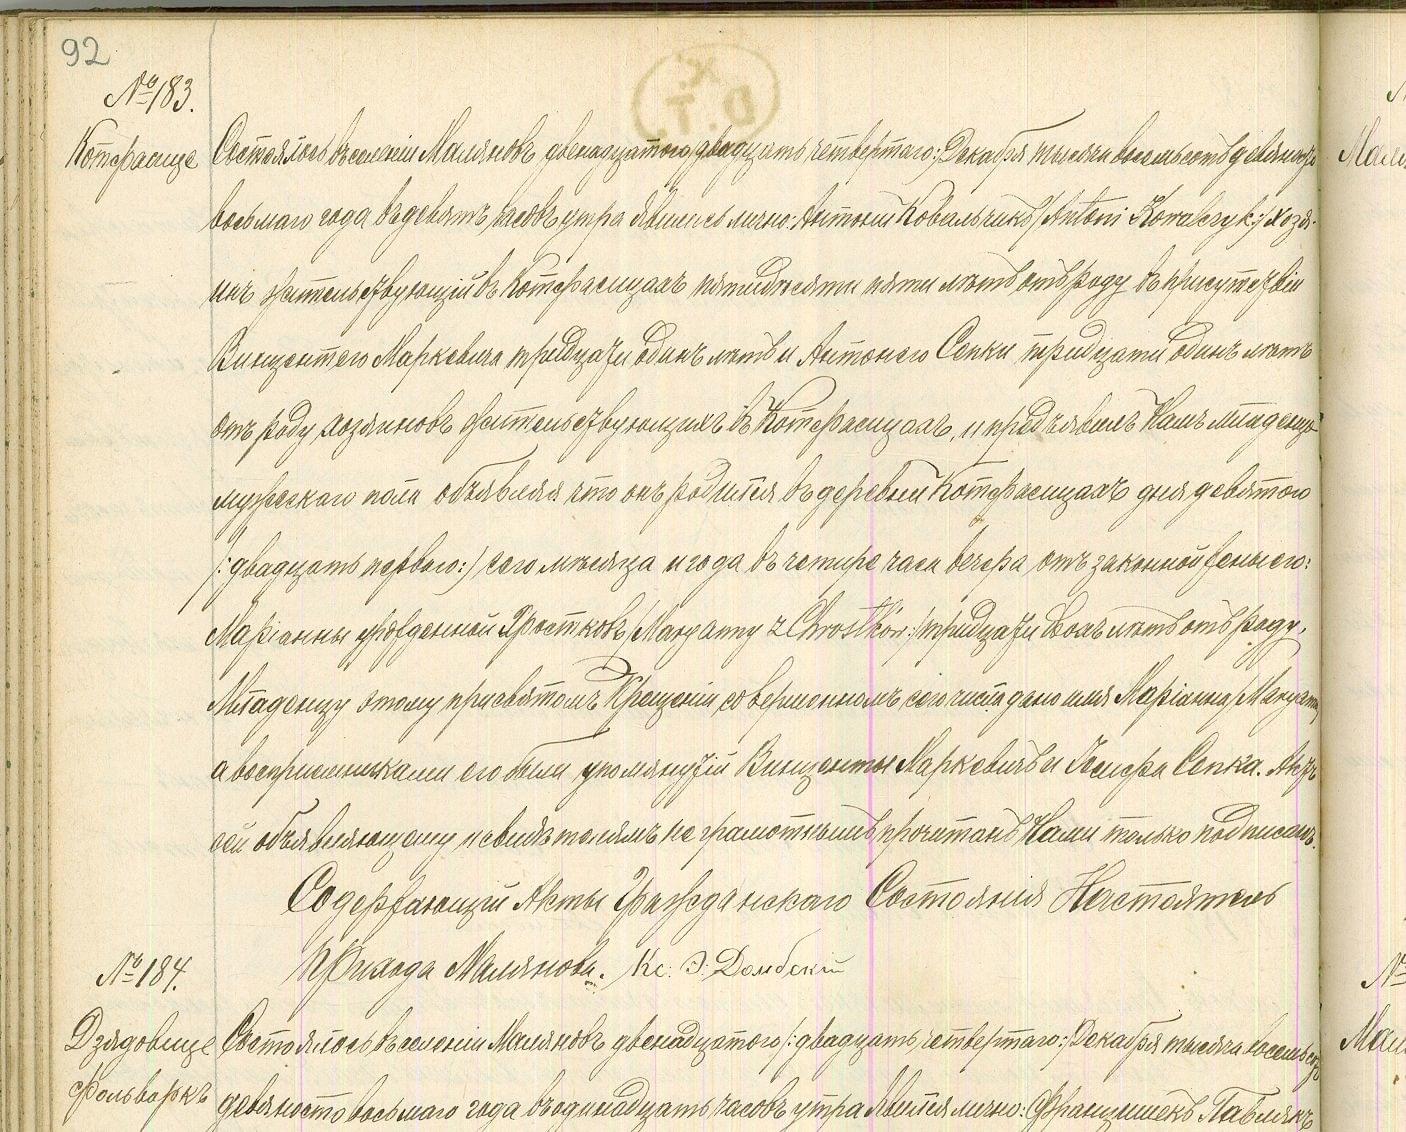 92
№ 183.
Котерасице
Состоялось въ селеніи Маляновъ двенадцатого /двадцать четвертаго:/ Декабря тысяча восемьсотъ девяносто
восьмаго года въ девять часовъ утра явились лично: Антони Ковальчикъ /Antoni Kowalczyk:/ хозя-
инъ жительствующій въ Котерасицахъ пятидесяти пяти летъ отъ роду въ присутствіи
Винцентего Маркевича тридцати одинъ летъ и Антонего Сепки тридцати одинъ летъ
отъ роду хозяиновъ жительствующихъ въ Котерасицахъ, и предъявилъ Намъ младенца
мужескаго пола объявляя что онъ родился въ деревни Котерасицахъ дня девятого
/:двадцать первого:/ сего месяца и года въ четыре часа вечера, отъ законной жены его:
Маріанны урожденной Хростковъ /Maryanny z Chrostków:/ тридцати летъ отъ роду,
Младенцу этому при святомъ Крещеніи, совершенномъ сего числа дано имя Маріанна /Maryanna
а восприемниками его были упомянутій Винценты Маркевичъ и Сепка. Актъ
сей объявляющему и свидетелямъ не грамотнымъ прочитанъ Нами только подписанъ.
Содержающій Акты Гражданского Состоянія Настоятель
Прихода Малянова. Кс: Э: Домбскій
№ 184.
Дзядовице
Фольваркъ
Состоялось въ селеніи Маляновъ двенадцатого /:двадцать четвертаго:/ Декабря тысяча восемьсотъ
девяносто восьмаго года въ одинадцать часовъ утра Явился лично: Францишекъ Павлякъ